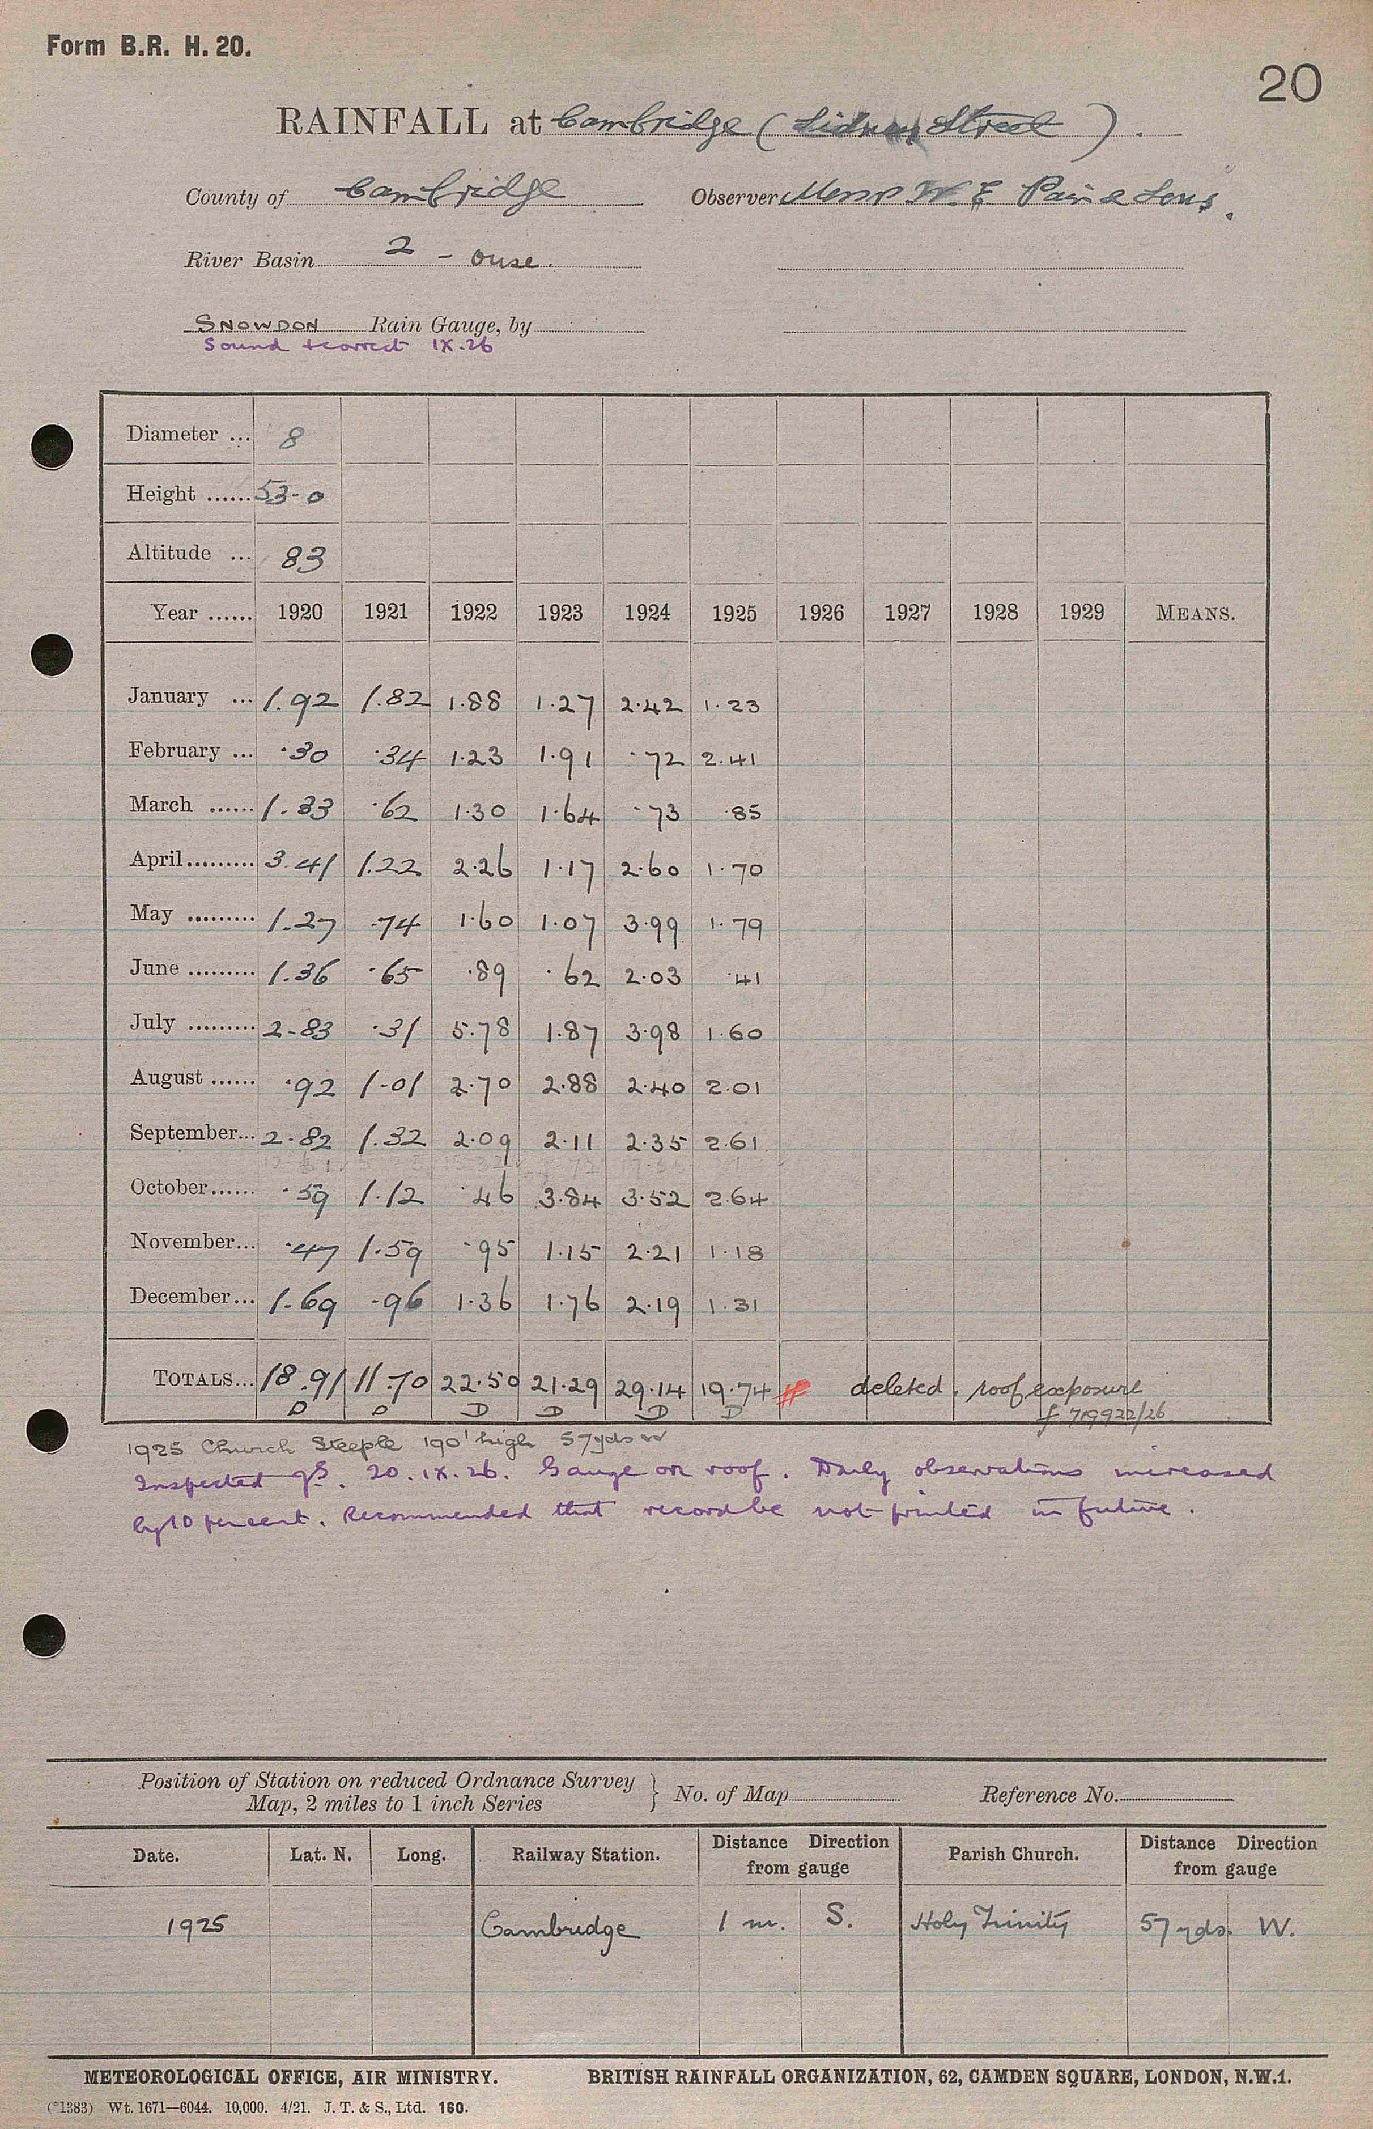 Form B.R. H. 20.
20
RAINFALL at Cambridge (Sidney Street).
County of Cambridge Observer Messrs W. E Pain & Sons.
River Basin 2 - Ouse.
SNOWDON Rain Gauge, by
Sound & correct IX.26
Diameter ... 8
Height ...... 53-0
Altitude ... 83
Year ...... 1920 1921 1922 1923 1924 1925 1926 1927 1928 1929 MEANS.
January ... 1.92 1.82 1.88 1.27 2.42 1.23
February ... .30 .34 1.23 1.91 .72 2.41
March ...... 1.33 .62 1.30 1.64 .73 .85
April ......... 3.41 1.22 2.26 1.17 2.60 1.70
May ......... 1.27 .74 1.60 1.07 3.99 1.79
June ......... 1.36 .65 .89 .62 2.03 .41
July ......... 2.83 .31 5.78 1.87 3.98 1.60
August ...... .92 1.01 2.70 2.88 2.40 2.01
September... 2.82 1.32 2.09 2.11 2.35 2.61
October...... .59 1.12 .46 3.84 3.52 2.64
November... .47 1.59 .95 1.15 2.21 1.18
December... 1.69 .96 1.36 1.76 2.19 1.31
TOTALS... 18.91 11.70 22.50 21.29 29.14 19.74 # deleted, roof exposure
D D D D D D f 719922/26
1925 Church Steeple 190' high 57yds W
Inspected 20.IX.26. Gauge on roof. Daily observations increased
by 10 percent. Recommended that record be not printed in future.
Position of Station on reduced Ordnance Survey
Map, 2 miles to 1 inch Series } No. of Map Reference No.
Date. Lat. N. Long. Railway Station. Distance Direction from gauge Parish Church. Distance Direction from gauge
1925 Cambridge 1 m. S. Holy Trinity 57 yds. W.
METEOROLOGICAL OFFICE, AIR MINISTRY. BRITISH RAINFALL ORGANIZATION, 62, CAMDEN SQUARE, LONDON, N.W.1.
(*1383) Wt. 1671—6044. 10,000. 4/21. J. T. & S., Ltd. 160.